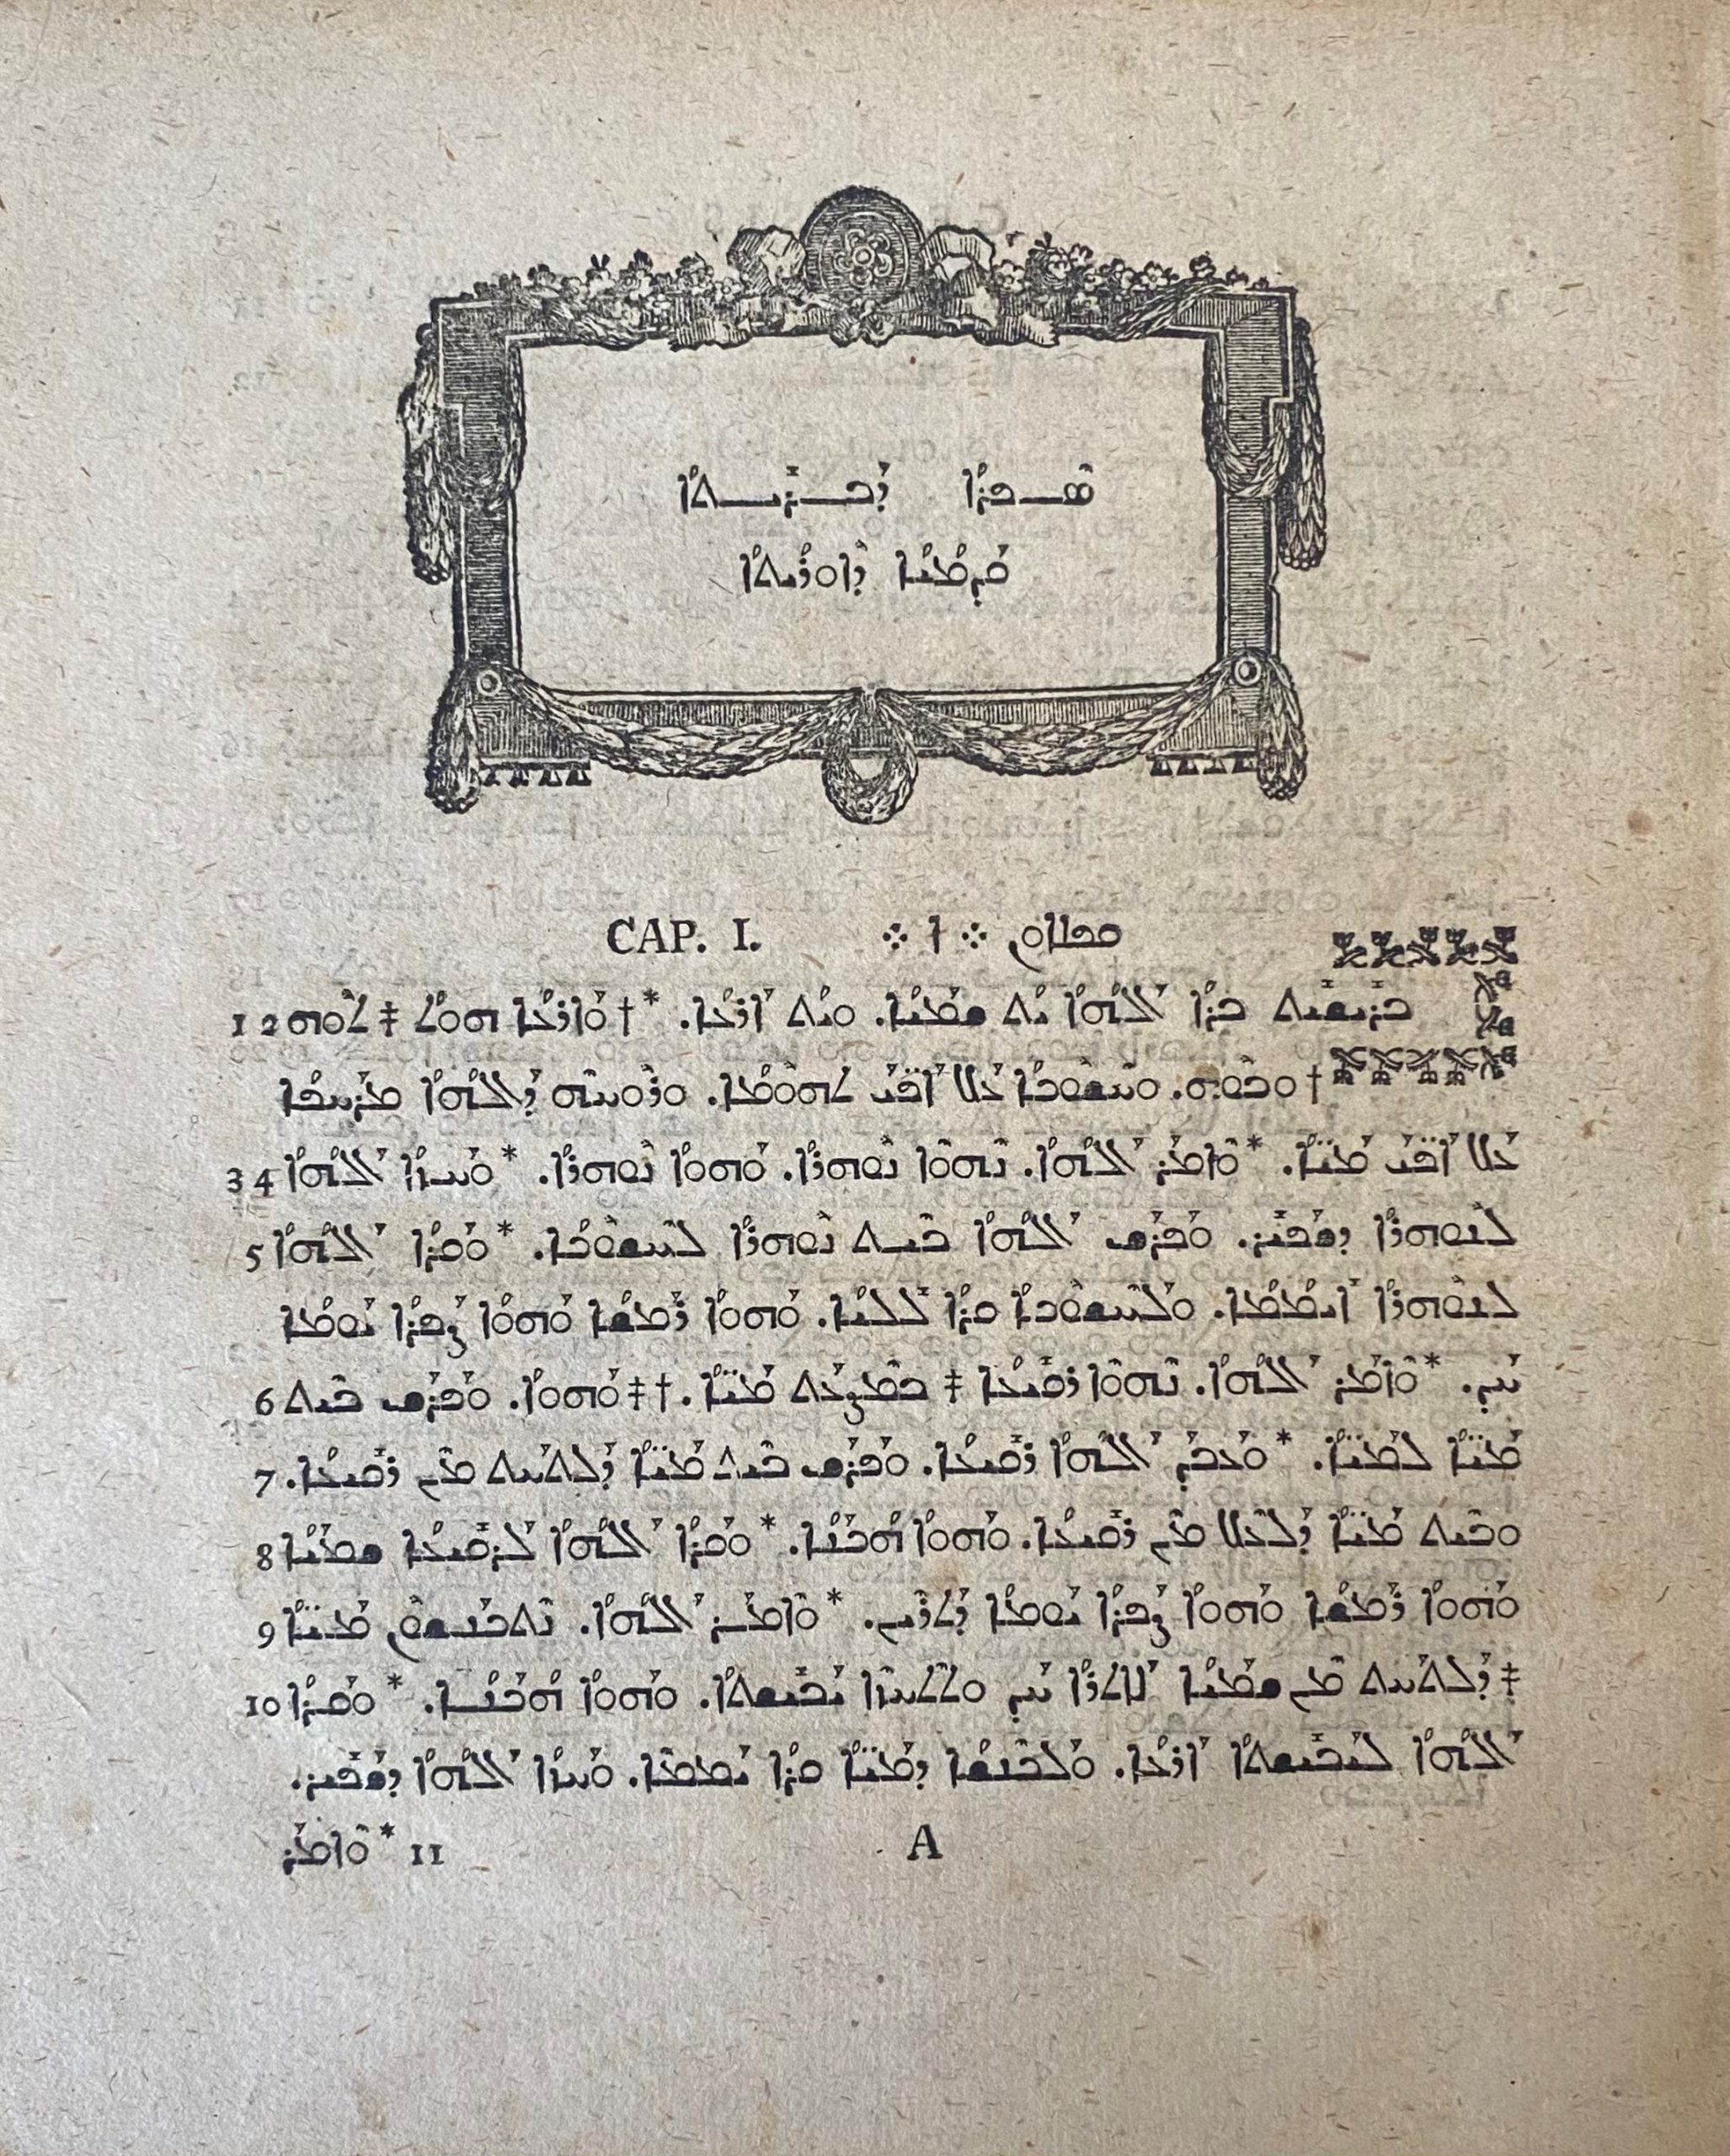 ܣܦܪܐ ܕܒܪܝܬܐ
ܩܕܡܝܐ ܕܐܘܪܝܬܐ
CAP. I. ܩܦܠܐܘܢ ܀ ܐ ܀
ܒܪܫܝܬ ܒܪܐ ܐܠܗܐ ܝܬ ܫܡܝܐ. ܘܝܬ ܐܪܥܐ. *†ܘܐܪܥܐ ܗܘܬ ‡ ܬܘܗ 1 2
†ܘܒܘܗ. ܘܚܫܘܟܐ ܥܠ ܐܦܝ ܬܗܘܡܐ. ܘܪܘܚܗ ܕܐܠܗܐ ܡܪܚܦܐ
ܥܠ ܐܦܝ ܡܝܐ. *ܘܐܡܪ ܐܠܗܐ. ܢܗܘܐ ܢܘܗܪܐ. ܘܗܘܐ ܢܘܗܪܐ. *ܘܚܙܐ ܐܠܗܐ 3 4
ܠܢܘܗܪܐ ܕܫܦܝܪ. ܘܦܪܫ ܐܠܗܐ ܒܝܬ ܢܘܗܪܐ ܠܚܫܘܟܐ. *ܘܩܪܐ ܐܠܗܐ 5
ܠܢܘܗܪܐ ܐܝܡܡܐ. ܘܠܚܫܘܟܐ ܩܪܐ ܠܠܝܐ. ܘܗܘܐ ܪܡܫܐ ܘܗܘܐ ܨܦܪܐ ܝܘܡܐ
ܚܕ. *ܘܐܡܪ ܐܠܗܐ. ܢܗܘܐ ܪܩܝܥܐ ‡ ܒܡܨܥܬ ܡܝܐ.†‡ܘܗܘܐ. ܘܦܪܫ ܒܝܬ 6
ܡܝܐ ܠܡܝܐ. *ܘܥܒܕ ܐܠܗܐ ܪܩܝܥܐ. ܘܦܪܫ ܒܝܬ ܡܝܐ ܕܠܬܚܬ ܡܢ ܪܩܝܥܐ. 7
ܘܒܝܬ ܡܝܐ ܕܠܥܠ ܡܢ ܪܩܝܥܐ. ܘܗܘܐ ܗܟܢܐ. *ܘܩܪܐ ܐܠܗܐ ܠܪܩܝܥܐ ܫܡܝܐ 8
ܘܗܘܐ ܪܡܫܐ ܘܗܘܐ ܨܦܪܐ ܝܘܡܐ ܕܬܪܝܢ. *ܘܐܡܪ ܐܠܗܐ. ܢܬܟܢܫܘܢ ܡܝܐ 9
‡ܕܠܬܚܬ ܡܢ ܫܡܝܐ ܠܐܬܪܐ ܚܕ ܘܬܬܚܙܐ ܝܒܝܫܬܐ. ܘܗܘܐ ܗܟܢܐ. *ܘܩܪܐ 10
ܐܠܗܐ ܠܝܒܝܫܬܐ ܐܪܥܐ. ܘܠܟܢܫܐ ܕܡܝܐ ܩܪܐ ܝܡܡܐ. ܘܚܙܐ ܐܠܗܐ ܕܫܦܝܪ.
A 11 *ܘܐܡܪ